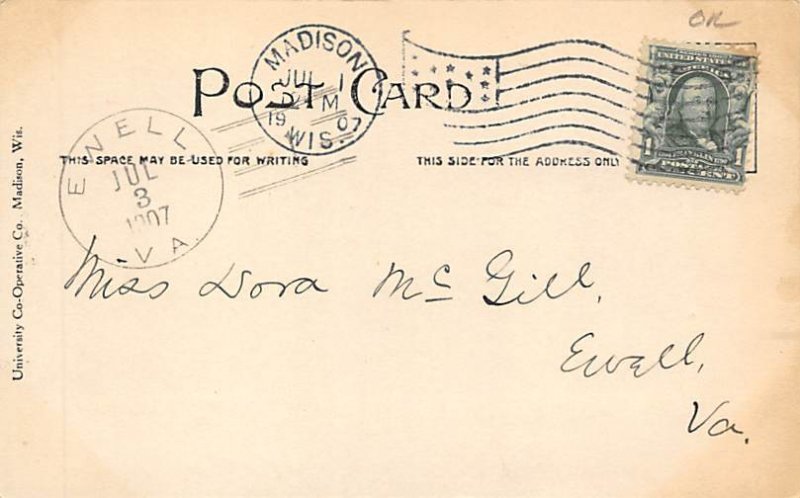 OR
MADISON
JUL 1
2 M
19 07
WIS.
POST CARD
UNITED STATES
OF AMERICA
1 FRANKLIN 1
POSTAGE
ONE CENT
EWELL
JUL
3
1907
VA.
THIS SPACE MAY BE USED FOR WRITING
THIS SIDE FOR THE ADDRESS ONLY
University Co-Operative Co. Madison, Wis.
Miss Dora McGill,
Ewell,
Va.